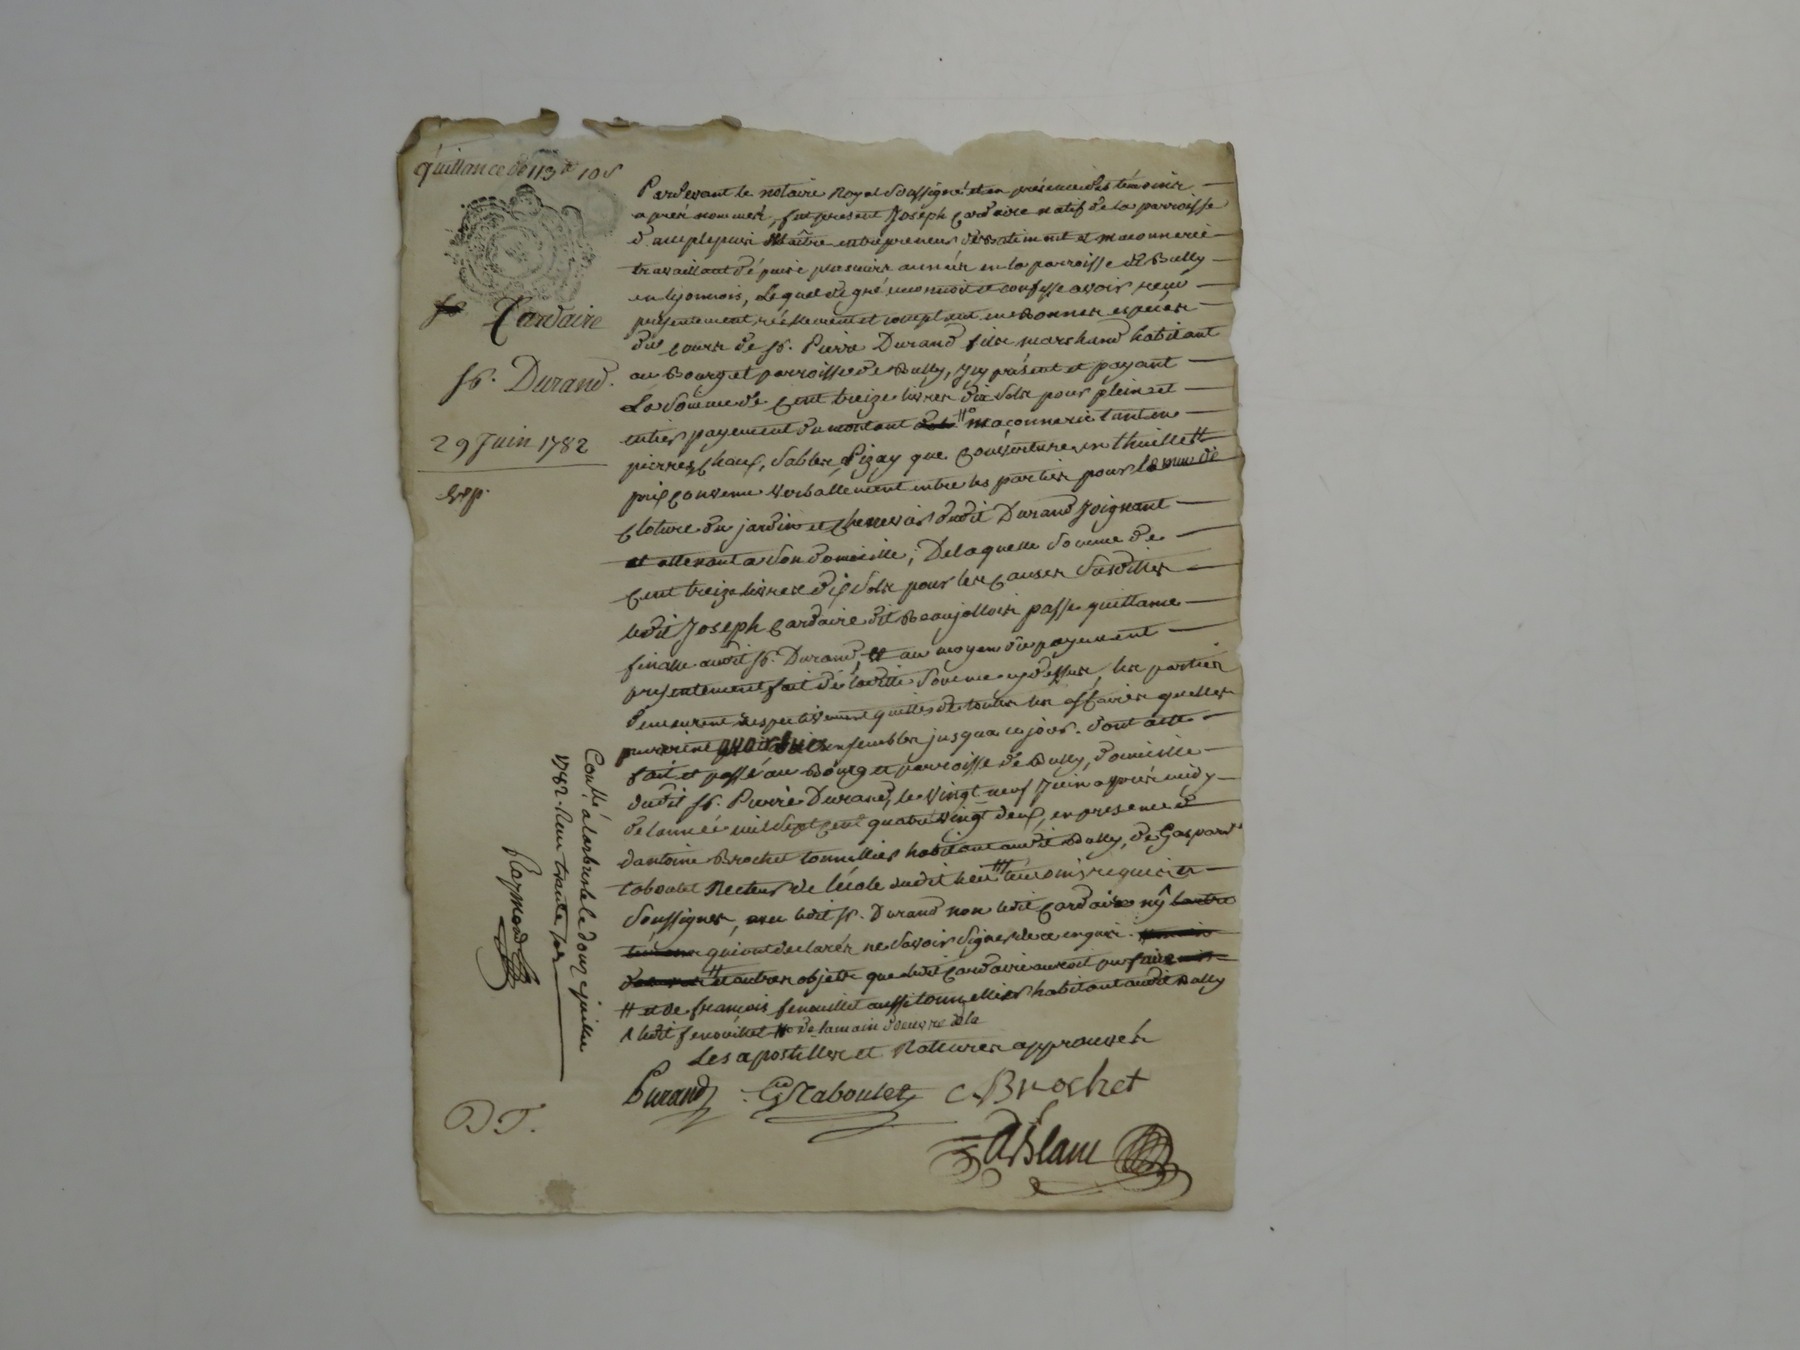 quittance de 113ᵗᵗ 10 s
Cardaire
sr. Durand.
29 Juin 1782
Exp.
Pardevant le notaire Royal Soussigné et en présence des témoins
aprés nommés, fut present Joseph Cardaire natif de la parroisse
d'amplepuis Maître entrepreneur de Batiment et maconnerie
travaillant dépuis plusieurs années en la parroisse de Bully
en lyonnois, Lequel de gré reconnoit et confesse avoir reçu
présentement, réellement et comptant en Bonnes espéces
du cours de sr. Pierre Durand fils marchand habitant
au Bourg et parroisse de Bully, Icy présent et payant
La Somme de Cent treize livres dix Sols pour plein et
entier payement du montant maçonnerie tant en
pierres, Chaux, Sables, Pizay que Couverture en thuille #
prix convenu verballement entre les parties pour le mur de
Cloture du jardin et Chenevier dudit Durand Joignant
et attenant a Son domicille; De laquelle Somme de
Cent treize livres dix Sols pour les causes Susdittes
ledit Joseph Cardaire dit Beaujollois passe quittance
finalle audit sr. Durand, et au moyen du payement
présentement fait de laditte Somme cy dessus, les parties
demeurent respectivement quittes de toutes les affaires quelles
peuvent avoir eues ensembles jusqua ce jour. Dont acte
fait et passé au Bourg et parroisse de Bully, domicille
dudit sr. Pierre Durand, le vingt neuf Juin apprés midy
de lannée mil Sept cent quatre vingt deux, en presence
dantoine Brochet tonnellier habitant audit Bully, de Gaspard
taboulet Recteur de lécole dudit lieu # témoins requis et
Soussignés, avec ledit sr. Durand non ledit Cardaire ny
qui ont declarés ne Savoir Signer de ce enquis.
# et autres objets que ledit Cardaire auroit pu faire
# et de françois fenouillet aussi tonnellier habitant audit Bully
ledit fenouillet # de la main d'oeuvre de la
Les apostilles et Ratures approuvés
Durand G Taboulet Brochet
Blanc
Conllé a larbresle le douze juillet
1782. Reçu trente sols
Raymond
D T.